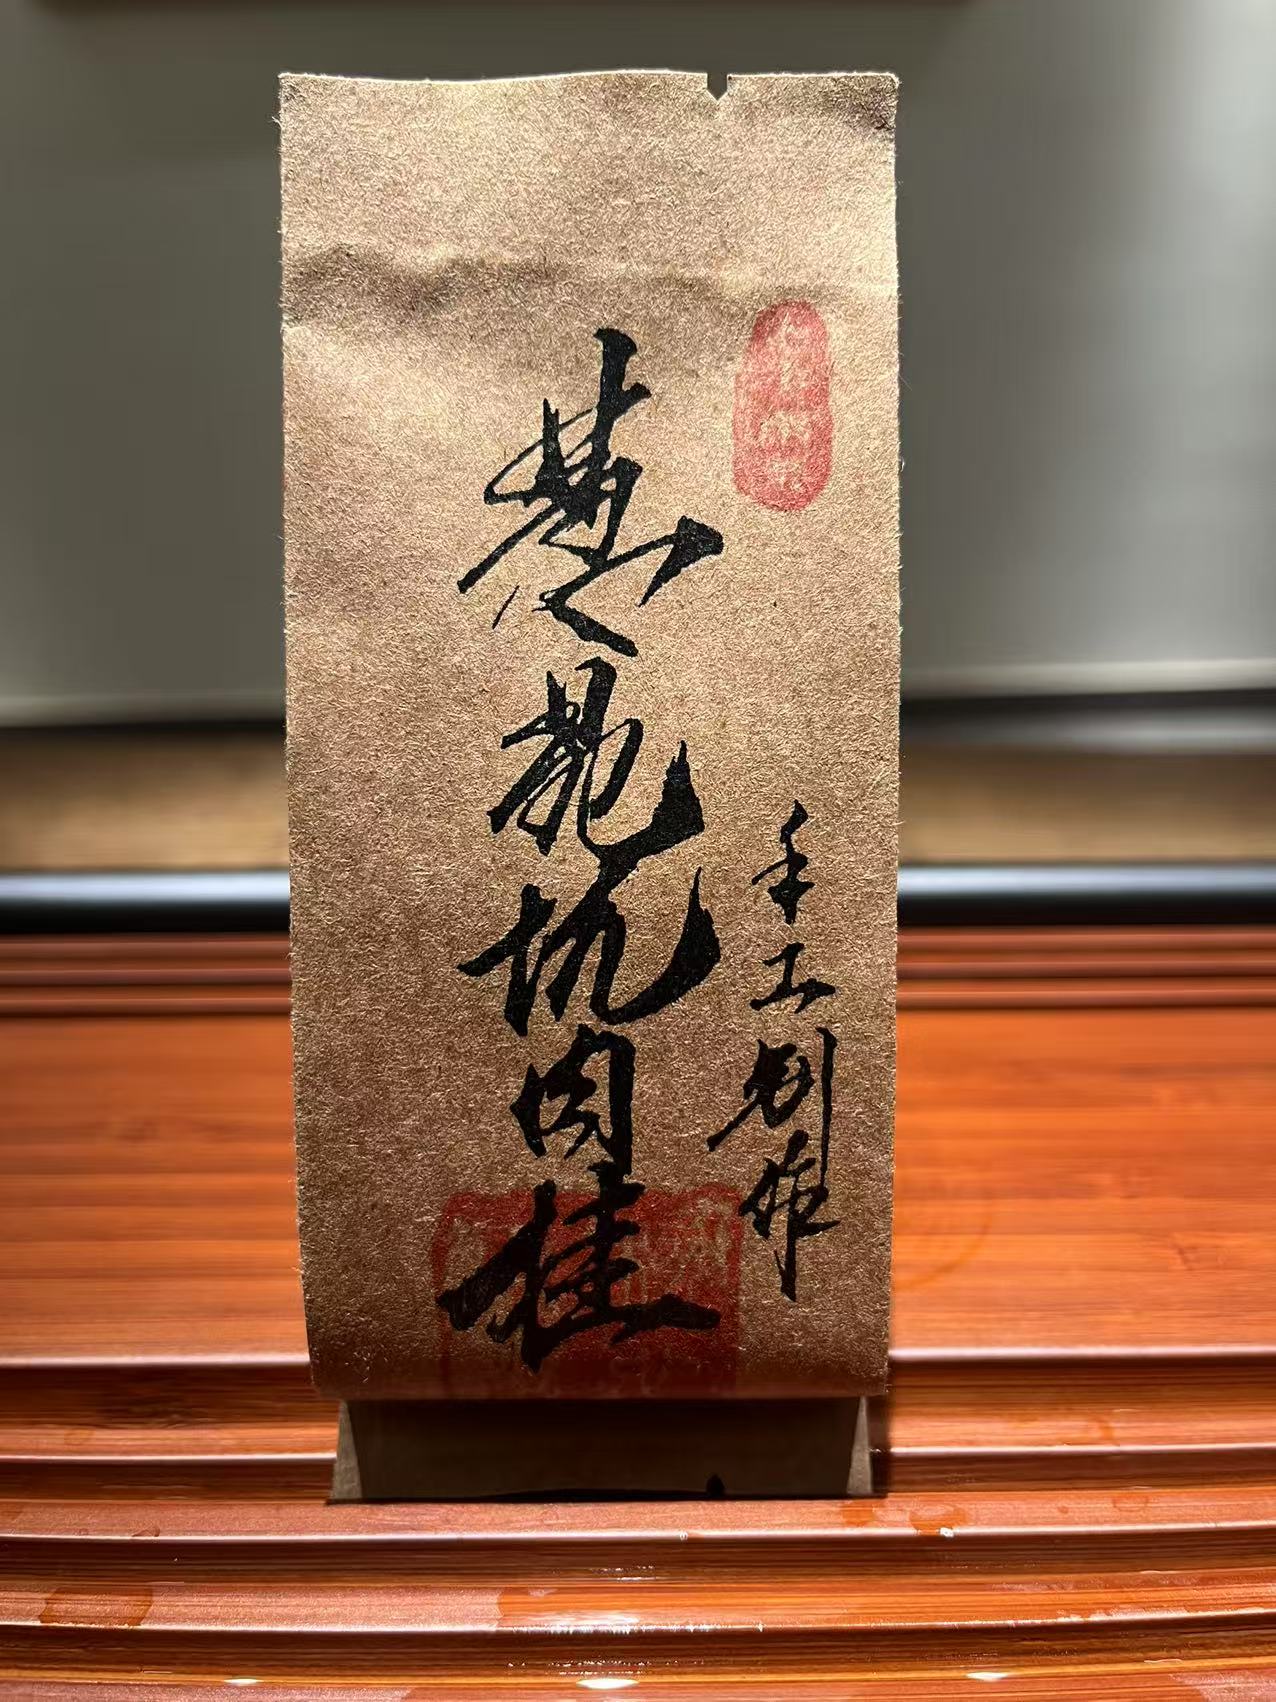 慧苑坑肉桂
手工制作